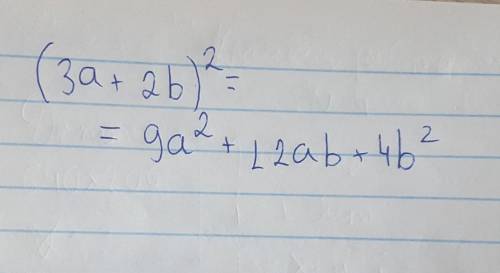 (3a + 2b)² =
= 9a² + 12ab + 4b²